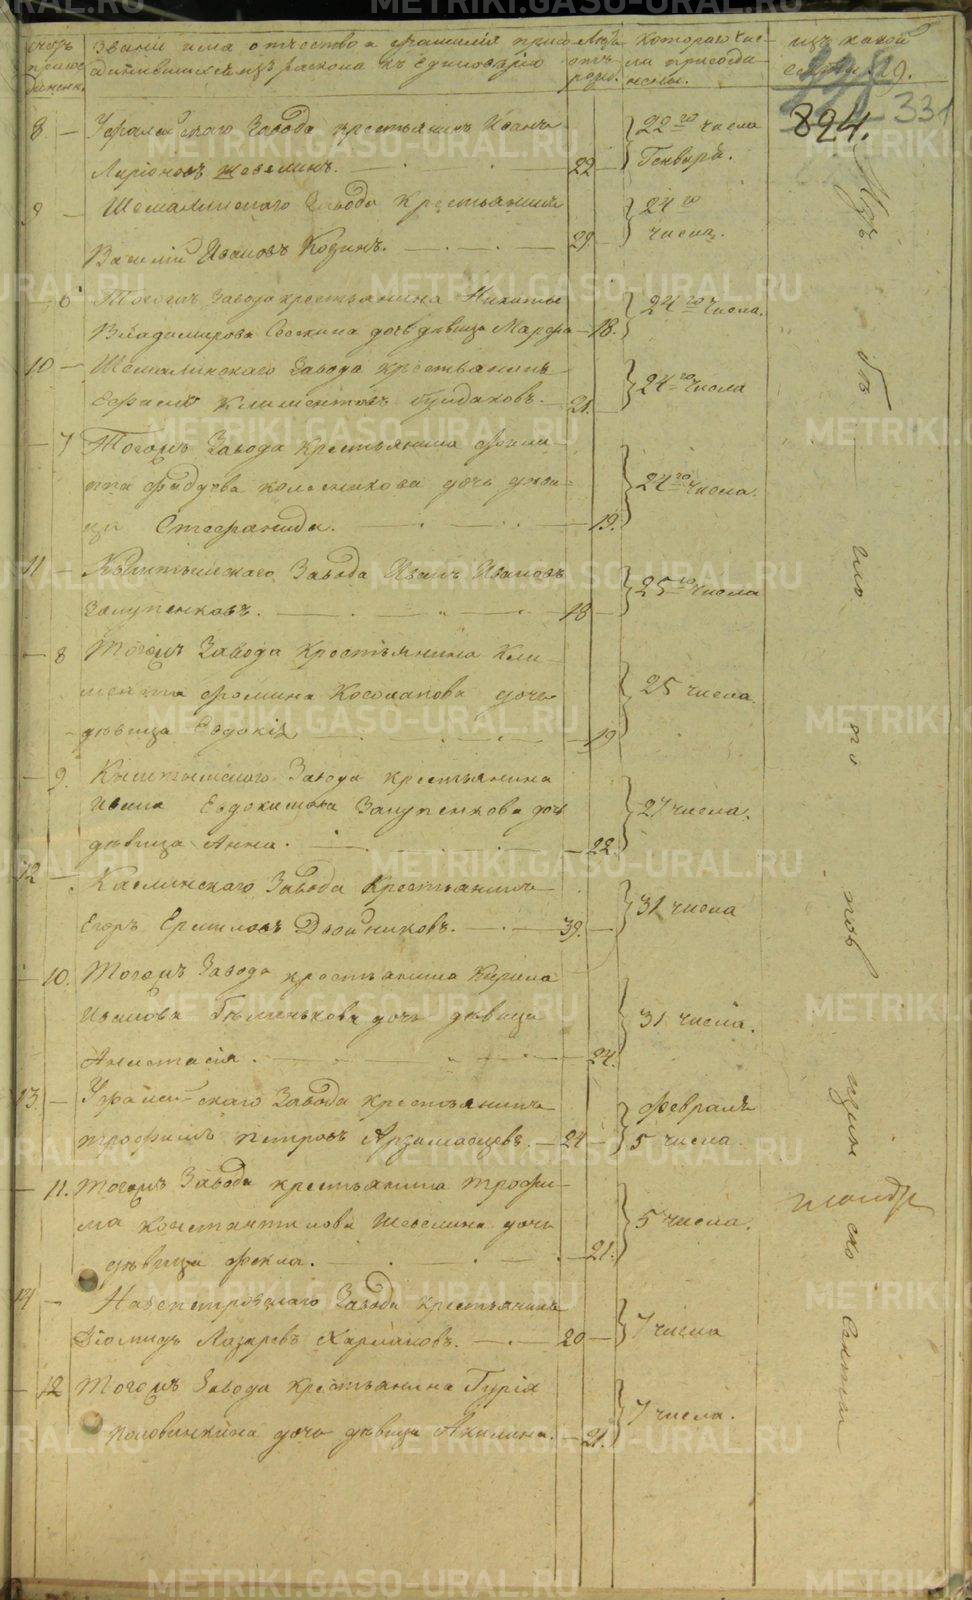 Званіе имя отчество и фамилія присо
единившихся изъ раскола къ Единоверію
Лѣта отъ роду.
Котораго чис-
ла присоеди-
нены.
изъ какой
секты
824.
331
8 — Уфалейскаго Завода крестьянинъ Иванъ
Ларіоновъ Шевелинъ. — 22 — 22го числа Генваря.
9 — Шемахинскаго Завода Крестьянинъ
Василій Ивановъ Козинъ. — 29 — 24го числа.
6 Тогожъ Завода крестьянина Никиты
Владимирова дочь дѣвица Марфа — 18. 24го числа.
10 — Шемахинскаго Завода крестьянинъ
Ефимъ Климентовъ — 21. 24го числа
— 7 Тогожъ Завода Крестьянина Филип-
па Фадѣева Колесникова дочь дѣви-
ца Стефанида. — 19. 24го числа.
11 — Кыштымскаго Завода Иванъ Ивановъ
Залупенковъ. — 18 — 25го числа
— 8 Тогожъ Завода Крестьянина Кли-
мента Фомина Косолапова дочь
дѣвица Евдокія — 19 25 числа.
— 9. Кыштымскаго Завода крестьянина
Ивана Евдокимова Залупенкова дочь
дѣвица Анна. — 22. 27 числа.
12 — Каслинскаго Завода Крестьянинъ
Егоръ Ермиловъ Двойниковъ. — 39. — 31 числа
— 10. Тогожъ Завода крестьянина Кирила
Иванова дочь дѣвица
Анастасія. — 24. 31 числа.
13. — Уфалейскаго Завода крестьянинъ
Трофимъ Петровъ Арзамасцевъ. — 24 — Февраля 5 числа.
— 11. Тогожъ Завода крестьянина Трофи-
ма Константинова Шевелина дочь
дѣвица Фекла. — 21. 5 числа.
14 — Нязепетровскаго Завода крестьянинъ
Діомидъ Лазаревъ Харлановъ. — 20 — 7 числа
— 12 Тогожъ Завода Крестьянина Гурія
Половинкина дочь дѣвица Акилина. — 21. 7 числа.
Изъ
секты
METRIKI.GASO-URAL.RU